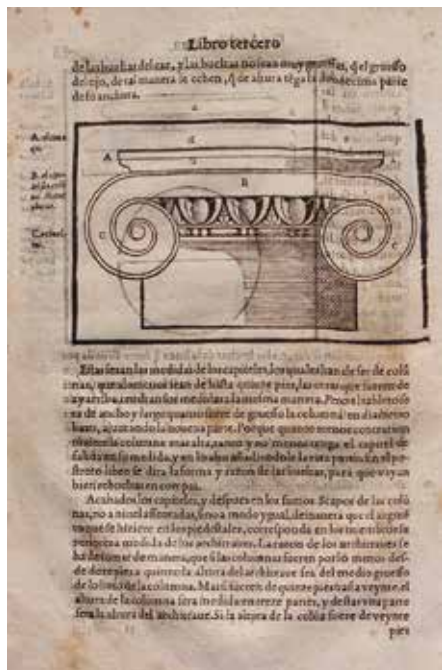 Libro tercero
de las hachas del exe, y las hachas no sean muy gruessas, q̃ el gruesso
del ojo, de tal manera se echen, q̃ de altura tẽga la duodecima parte
de su anchura.
A
A
B
C
C
Estas seran las medidas de los capiteles, los quales han de ser de colũ
nas, que a lo menos sean de hasta quinze pies, las otras que fueren de
ay arriba, tendran sus medidas a la misma manera.
de ancho y largo quanto fuere de gruesso la columna en diametro
baxo, ajuntando la nouena parte. Porque quanto menos contractura
tuuiere la columna mas alta, tanto y no menos tenga el capitel de
salida en su medida, y en lo alto añadiendole la rata parte. En el po-
strero libro se dira la forma y razon de las hachas, para que vayan
bien rebueltas en compas.
Acabados los capiteles, y despues en los sumos Scapos de las colũ
nas, no a niuel assentadas, sino a modo ygual, de manera que el augmẽ
to que se hiziere en los piedestales, corresponda en los miembros su
periores a medida de los architraues. La razon de los architraues se
ha de tomar de manera, que si las columnas fueren por lo menos des-
de doze pies a quinze la altura del architraue sea del medio gruesso
de lo baxo de la columna. Mas si fueren de quinze pies hasta veynte, el
altura de la columna sera medida en treze partes, y destas vna parte
sera la altura del architraue. Si la altura de la colũa fuere de veynte
pies